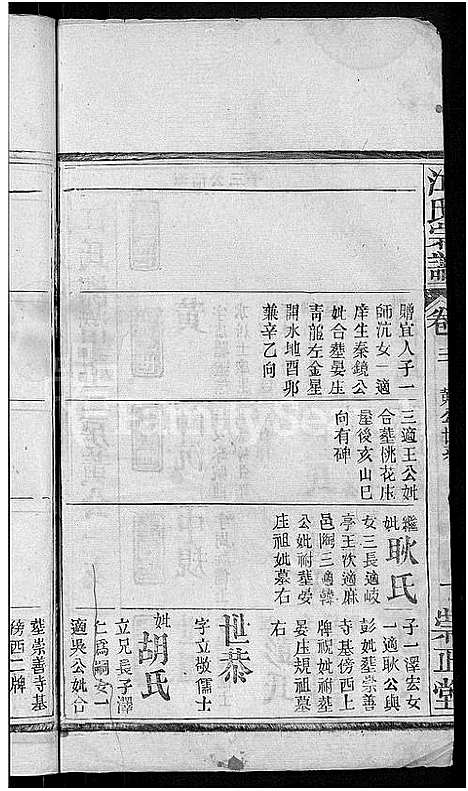 氏宗譜
卷三
崇正堂
贈宜人子一
師沆女一適
庠生秦鏡公
妣合塟晏庄
青龍左金星
開水地酉卯
兼辛乙向
三適王公妣
合塟桃花庄
屋後亥山巳
向有碑
繼妣耿氏
女三長適岐
亭王次適麻
邑陶三適韓
公妣祔塟晏
庄祖妣墓右
子一澤宏女
一適耿公與
彭妣塟崇善
寺基傍西上
牌視妣祔塟
晏庄規祖墓
右
世恭
字立敬儒士
妣胡氏
立兄長子澤
仁爲嗣女一
適吳公妣合
塟崇善寺基
傍西二牌